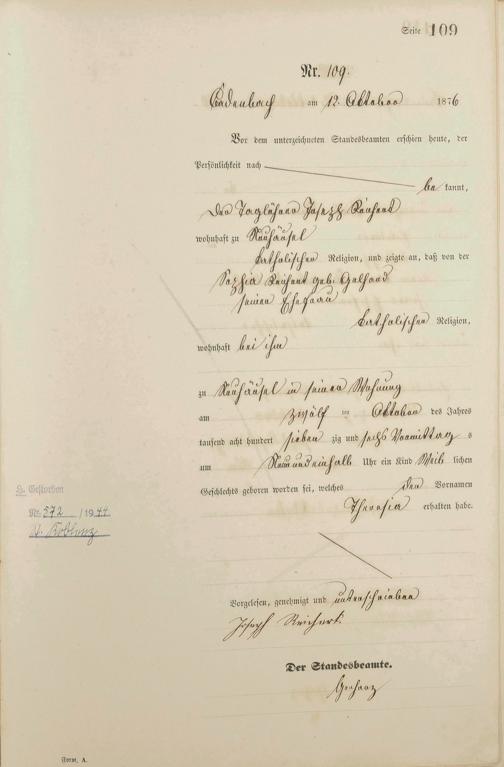 Seite 109
Nr. 109.
Cadenbach am 12. Oktober 1876
Vor dem unterzeichneten Standesbeamten erschien heute, der
Persönlichkeit nach
be kannt,
der Taglöhner Joseph Reichert
wohnhaft zu Neuhäusel
katholischer Religion, und zeigte an, daß von der
Sophia Reichert geb: Gelhard
seiner Ehefrau
katholischer Religion,
wohnhaft bei ihm
zu Neuhäusel in seiner Wohnung
am zwölf ten Oktober des Jahres
tausend acht hundert sieben zig und sechs Vormittag s
um Neunundeinhalb Uhr ein Kind Weib lichen
Geschlechts geboren worden sei, welches den Vornamen
Theresia erhalten habe.
Vorgelesen, genehmigt und unterschrieben
Joseph Reichert.
Der Standesbeamte.
Gestorben
Nr. 572 / 1944
Koblenz
Form. A.